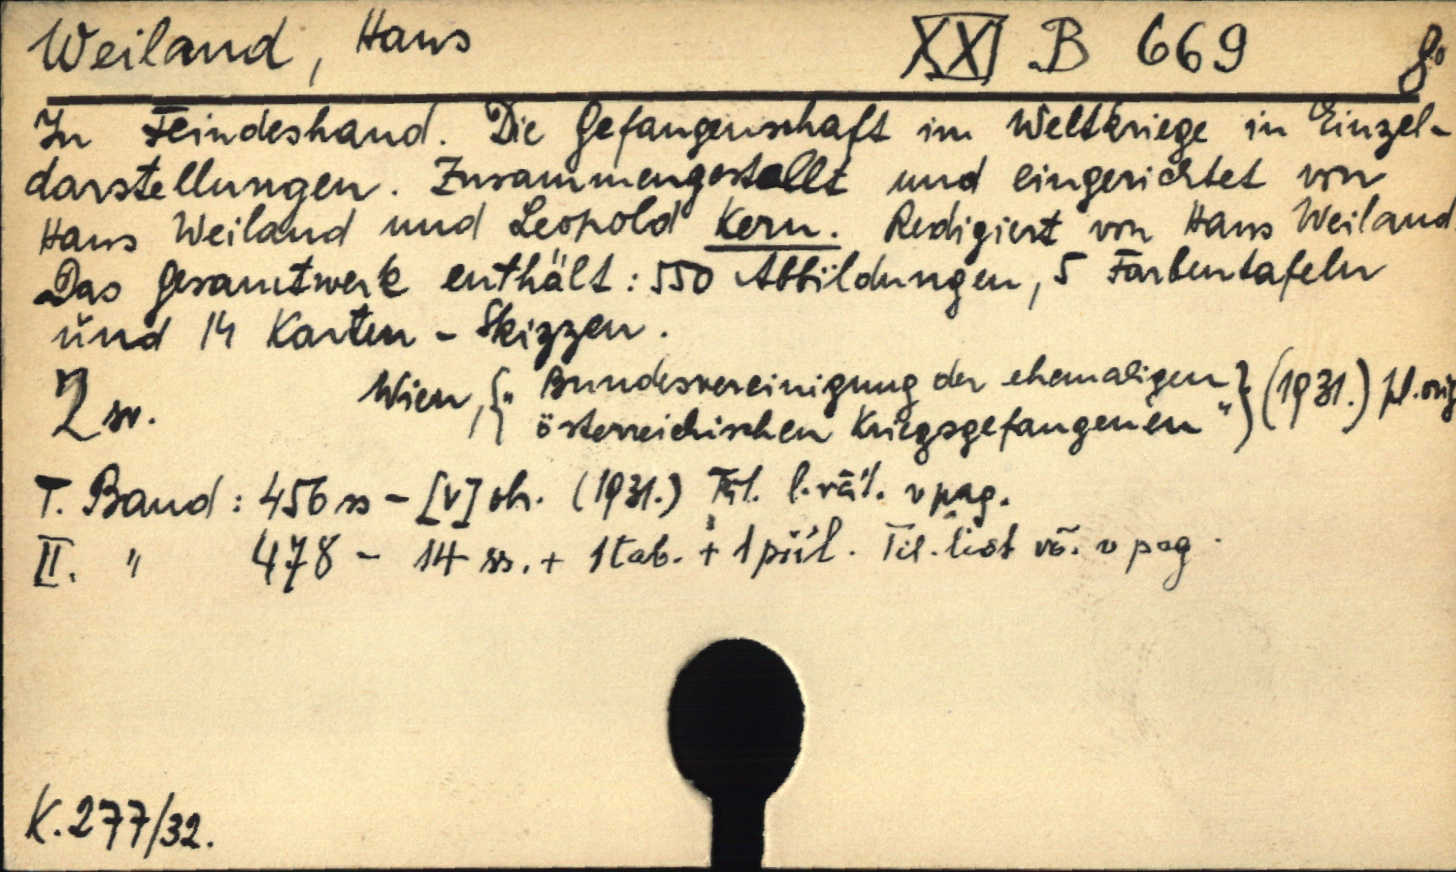 Weiland, Hans XXI B 669 8°
In Feindeshand. Die Gefangenschaft im Weltkriege in Einzel-
darstellungen. Zusammengestellt und eingerichtet von
Hans Weiland und Leopold Kern. Redigiert von Hans Weiland.
Das Gesamtwerk enthält: 550 Abbildungen, 5 Farbentafeln
und 14 Karten - Skizzen.
2 sv. Wien, {" Bundesvereinigung der ehemaligen
österreichischen Kriegsgefangenen "} (1931.) pl. orig
I. Band: 456 ss - [V] sh. (1931.) v pag.
II. " 478 - 14 ss. + 1 tab. + 1 v pag.
K. 277/32.